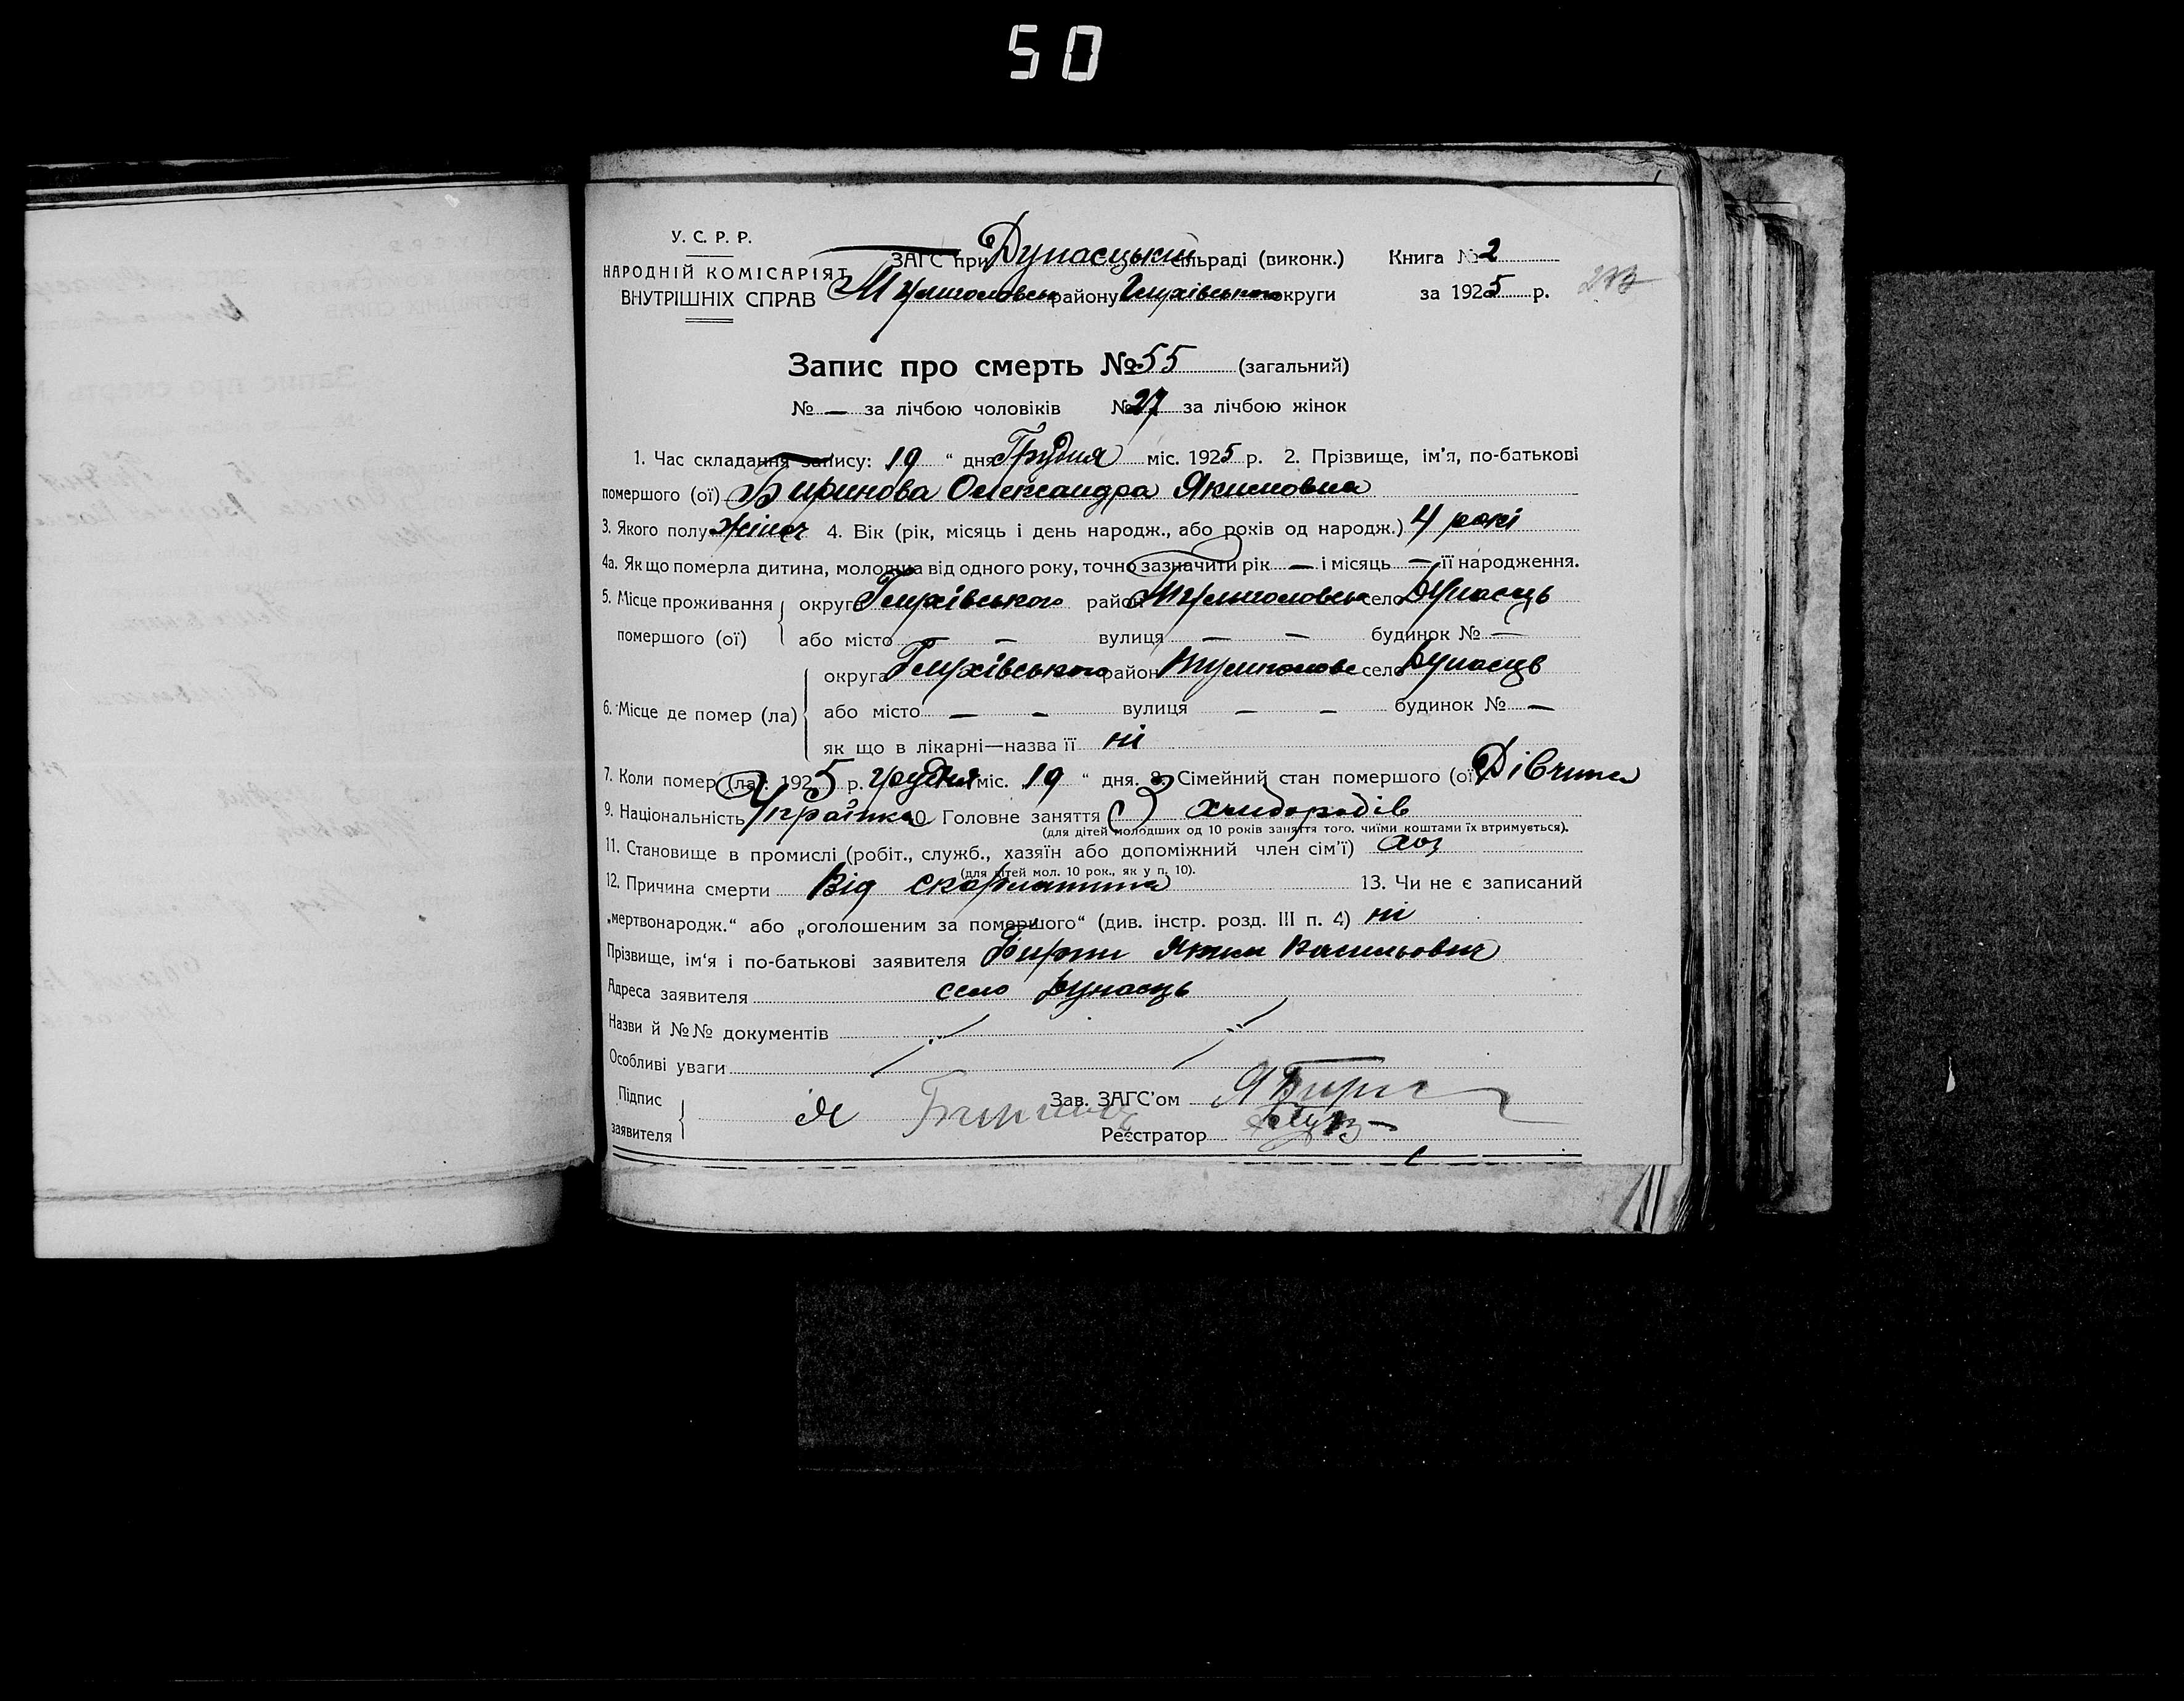 50
У. С. Р. Р.
НАРОДНІЙ КОМІСАРІЯТ
ВНУТРІШНІХ СПРАВ
ЗАГС при Дунаєцький сільраді (виконк.) Книга № 2
Тулиголовськ району Глухівського округи за 1925 р.
Запис про смерть № 55 (загальний)
№ — за лічбою чоловіків № 27 за лічбою жінок
1. Час складання запису: 19 “ дня Грудня міс. 1925 р. 2. Прізвище, ім'я, по-батькові
помершого (ої) Биринова Олександра Якимовна
3. Якого полу жіноч 4. Вік (рік, місяць і день народж., або років од народж.) 4 рокі
4а. Як що померла дитина, молодша від одного року, точно зазначити рік — і місяць — її народження.
5. Місце проживання помершого (ої) округ Глухівського район Тулиголовськ село Дунаєць
або місто — — вулиця — — будинок № —
6. Місце де помер (ла) округа Глухівського район Тулиголовс село Дунаєць
або місто — — вулиця — — будинок № —
як що в лікарні—назва її ні
7. Коли помер (ла): 1925 р. грудня міс. 19 “ дня. 8. Сімейний стан помершого (ої) Дівчина
9. Національність Українка 10 Головне заняття хлібородів
(для дітей молодших од 10 років заняття того, чиїми коштами їх втримується).
11. Становище в промислі (робіт., служб., хазяїн або допоміжний член сім'ї) хоз
(для дітей мол. 10 рок., як у п. 10).
12. Причина смерти Від скарлатина 13. Чи не є записаний
„мертвонародж.“ або „оголошеним за помершого“ (див. інстр. розд. III п. 4) ні
Прізвище, ім‘я і по-батькові заявителя Яким Васильович
Адреса заявителя село Дунаєць
Назви й №№ документів
Особливі уваги
Підпис заявителя Я
Зав. ЗАГС'ом
Реєстратор